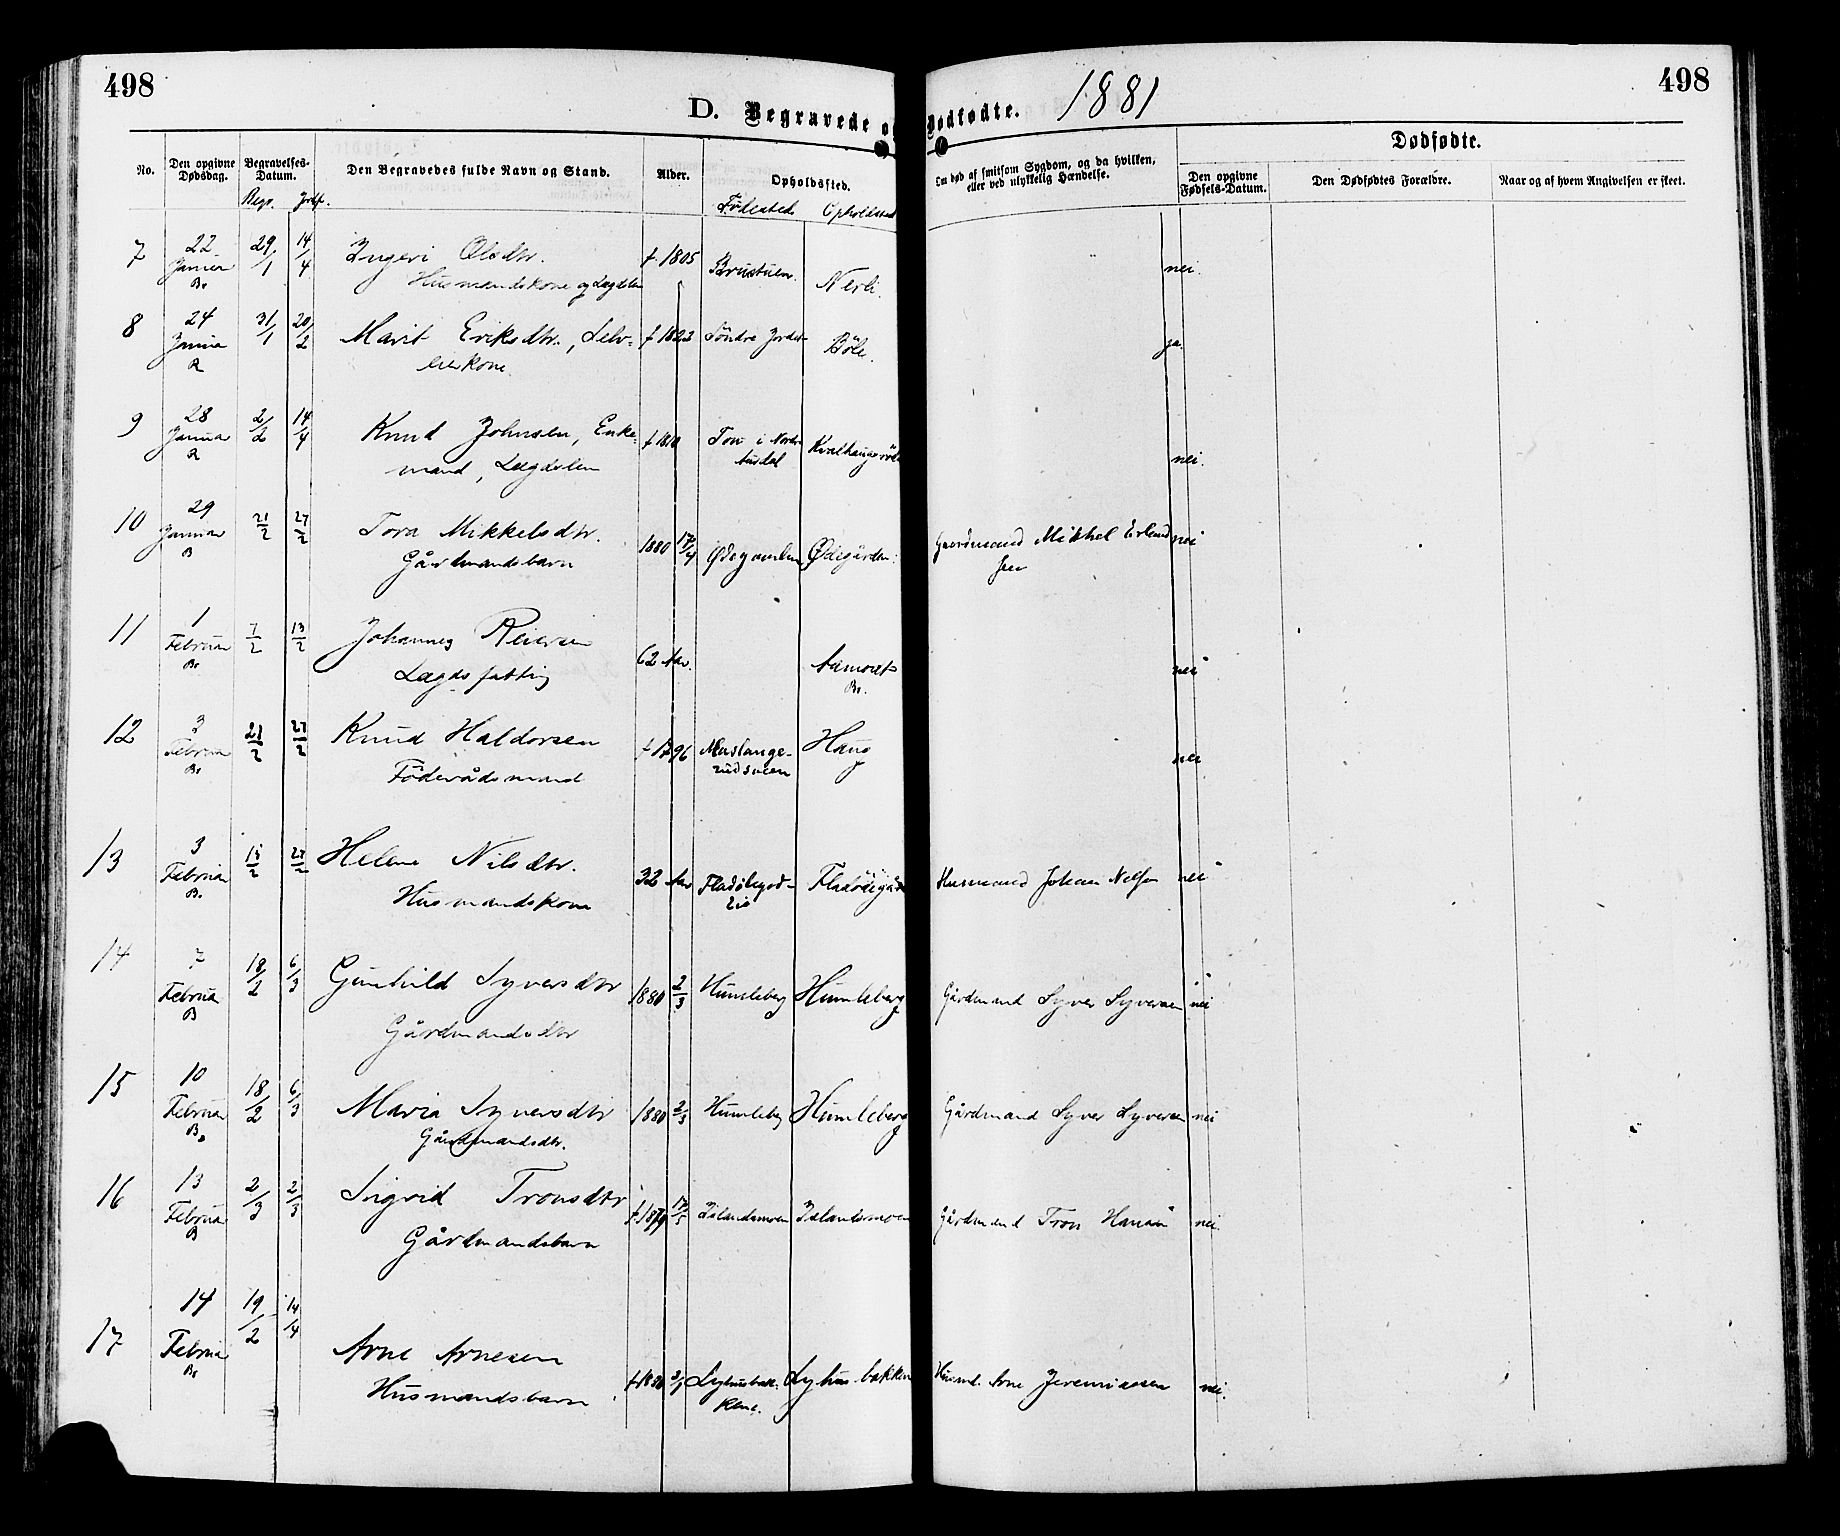 498
D. Begravede o
Dødfødte. 1881
498
No.
Den opgivne Dødsdag.
Begravelses-Datum.
Begr. Jordf.
Den Begravedes fulde Navn og Stand.
Alder.
Opholdssted.
Fødested Opholdssted
Om død af smitsom Sygdom, og da hvilken, eller ved ulykkelig Hændelse.
Dødfødte.
Den opgivne Fødsels-Datum.
Den Dødfødtes Forældre.
Naar og af hvem Angivelsen er skeet.
7 22 29/1 14/4 Ingeri Olsdtr. f. 1805 Brustuen. Nerli. nei.
Januar Husmandskone og Lægdslem
Br
8 24 31/1 20/2 Marit Eriksdtr., Selv- f 1823 Søndre Jordet Böle. ja.
Januar eierkone.
R
9 28 2/2 14/4 Knud Johnsen, Enke- f 1810 Ton i Nordre Kvalhaugsröd nei.
Januar mand, Lægdslem Ausdal
R
10 29 21/2 27/2 Tora Mikkelsdtr. 1880 17/4 Ødegaarden Ødegården. Gaardmand Mikkel Erland nei
Januar Gårdmandsbarn sen
B
11 1 7/2 13/2 Johannes Reiersen 62 Aar. Aamodt nei
Februar Lægdsfattig Br.
Br
12 3 21/2 27/2 Knud Haldorsen f 1796 Maslange- Haug nei
Februar Föderådsmand rudsveen
Br
13 3 15/2 27/2 Helene Nilsdtr. 32 Aar Husmand Johan Nilsen nei
Februar Husmandskone
B.
14 7 18/2 6/3 Gunhild Syversdtr 1880 2/3 Humleberg Humleberg Gårdmand Syver Syversen nei
Februar Gårdmandsdtr
B
15 10 18/2 6/3 Maria Syversdtr 1880 2/3 Humleberg Humleberg Gårdmand Syver Syversen nei
Februar Gårdmandsdtr.
B.
16 13 2/3 2/3 Sigrid Tronsdtr f 1879 17/5 Islandsmoen Islandsmoen Gårdmand Tron Hansen nei.
Februar Gårdmandsbarn
B
17 14 19/2 14/4 Arne Arnesen f 1880 Lyhusbak- Lyhusbakken Husmd. Arne Jeremiasen nei.
Februar Husmandsbarn kene.
Br